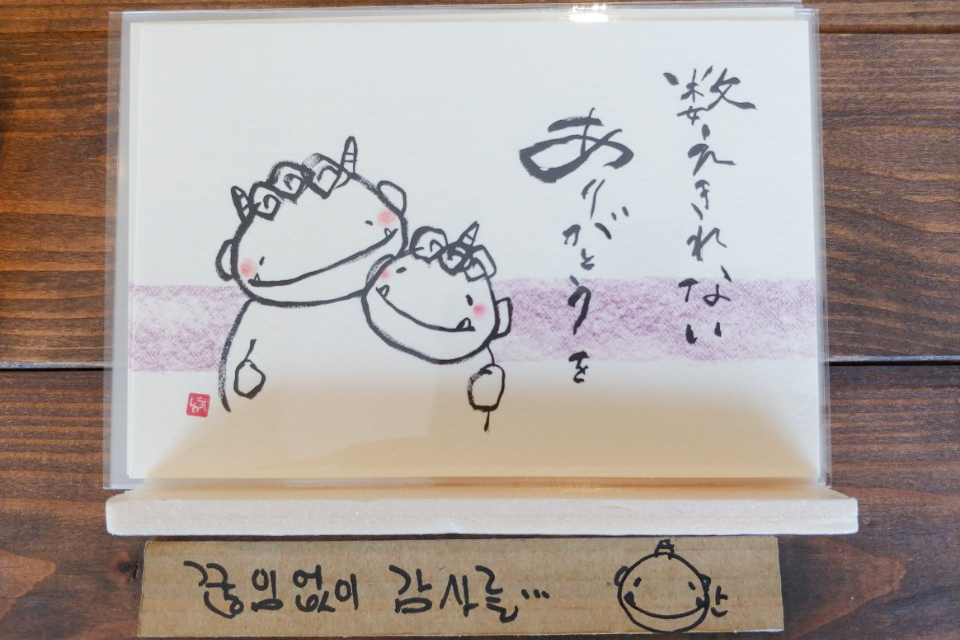 数えきれない
ありがとうを
꾸밈없이 감사를...